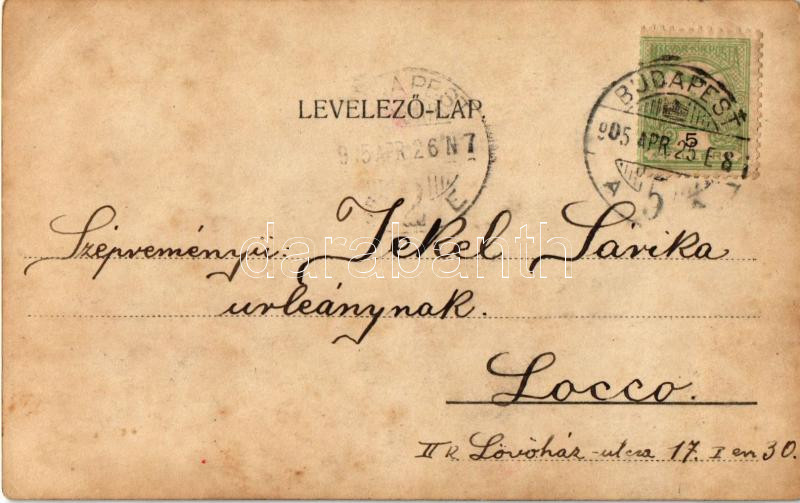 MAGYAR KIR. POSTA
5
BUDAPEST
905 APR 25 E 8
BUDAPEST
905 APR 26 N 7
LEVELEZŐ-LAP.
Szépreményü: Jekel Sárika
urleánynak.
darabanth
Locco.
II k Lövöház-utcza 17. I em 30.